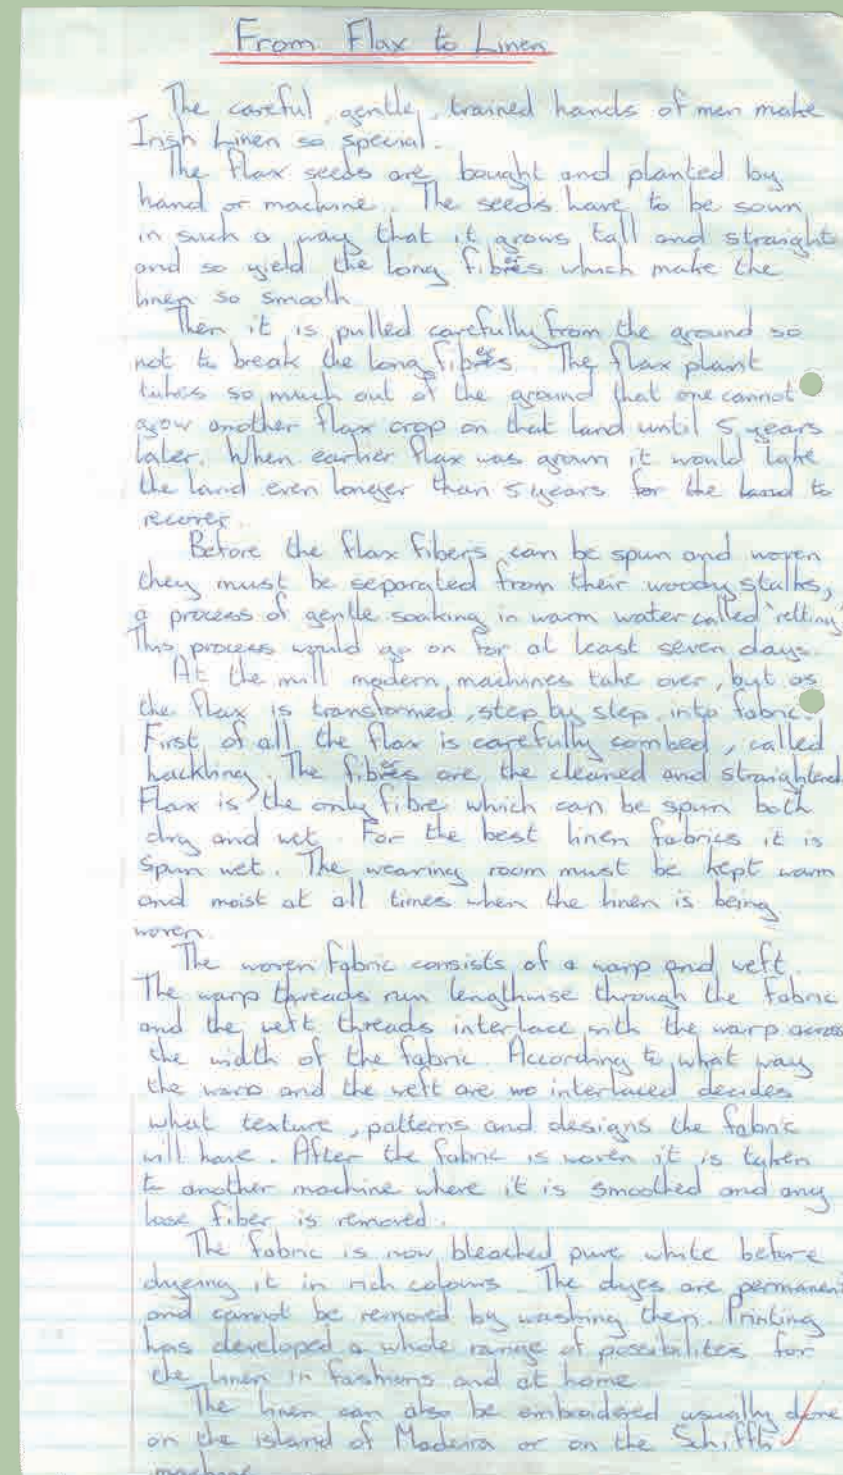 From Flax to Linen
The careful, gentle, trained hands of men make
Irish Linen so special.
The flax seeds are bought and planted by
hand or machine. The seeds have to be sown
in such a way that it grows tall and straight
and so yield the long fibres which make the
linen so smooth
Then it is pulled carefully from the ground so
not to break the long fibres. The flax plant
takes so much out of the ground that one cannot
grow another flax crop on that land until 5 years
later. When earlier flax was grown it would take
the land even longer than 5 years for the land to
recover.
Before the flax fibers can be spun and woven
they must be separated from their woody stalks,
a process of gentle soaking in warm water called 'retting'
This process would go on for at least seven days.
At the mill modern machines take over, but as
the flax is transformed, step by step, into fabric.
First of all the flax is carefully combed, called
hackling. The fibres are the cleaned and straightened
Flax is the only fibre which can be spun both
dry and wet. For the best linen fabrics it is
spun wet. The wearing room must be kept warm
and moist at all times when the linen is being
woven.
The woven fabric consists of a warp and weft.
The warp threads run lengthwise through the fabric
and the weft threads interlace with the warp across
the width of the fabric. According to what way
the warp and the weft are interlaced decides
what texture, patterns and designs the fabric
will have. After the fabric is woven it is taken
to another machine where it is smoothed and any
lose fiber is removed.
The fabric is now bleached pure white before
dyeing it in rich colours. The dyes are permanent
and cannot be removed by washing then. Printing
has developed a whole range of possibilites for
the linen in fashions and at home
The linen can also be embroidered usually done
on the island of Madeira or on the Schiffli
machine